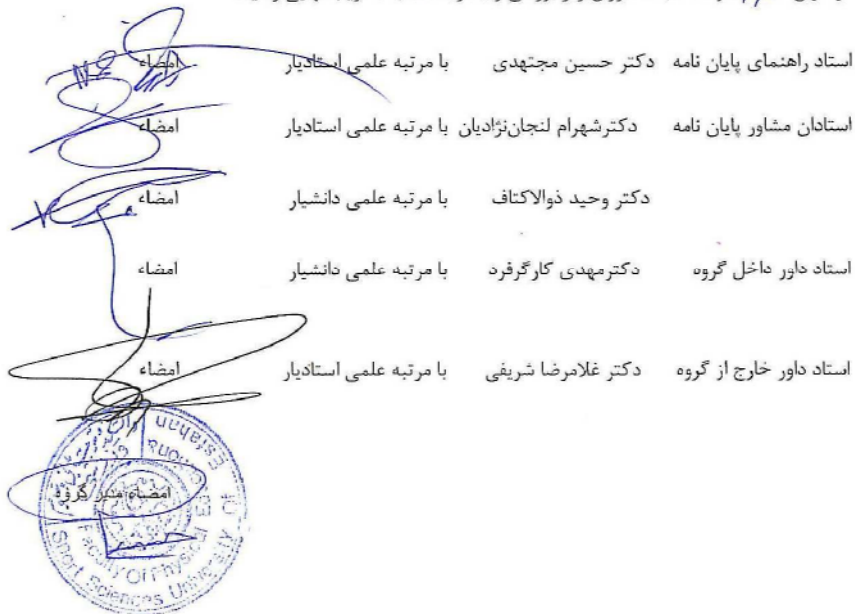 استاد راهنمای پایان نامه دکتر حسین مجتهدی با مرتبه علمی استادیار امضاء
استادان مشاور پایان نامه دکترشهرام لنجان‌نژادیان با مرتبه علمی استادیار امضاء
دکتر وحید ذوالاکتاف با مرتبه علمی دانشیار امضاء
استاد داور داخل گروه دکترمهدی کارگرفرد با مرتبه علمی دانشیار امضاء
استاد داور خارج از گروه دکتر غلامرضا شریفی با مرتبه علمی استادیار امضاء
امضاء مدیر گروه
Faculty Of Physical
Sport Sciences University Of
Esfahan